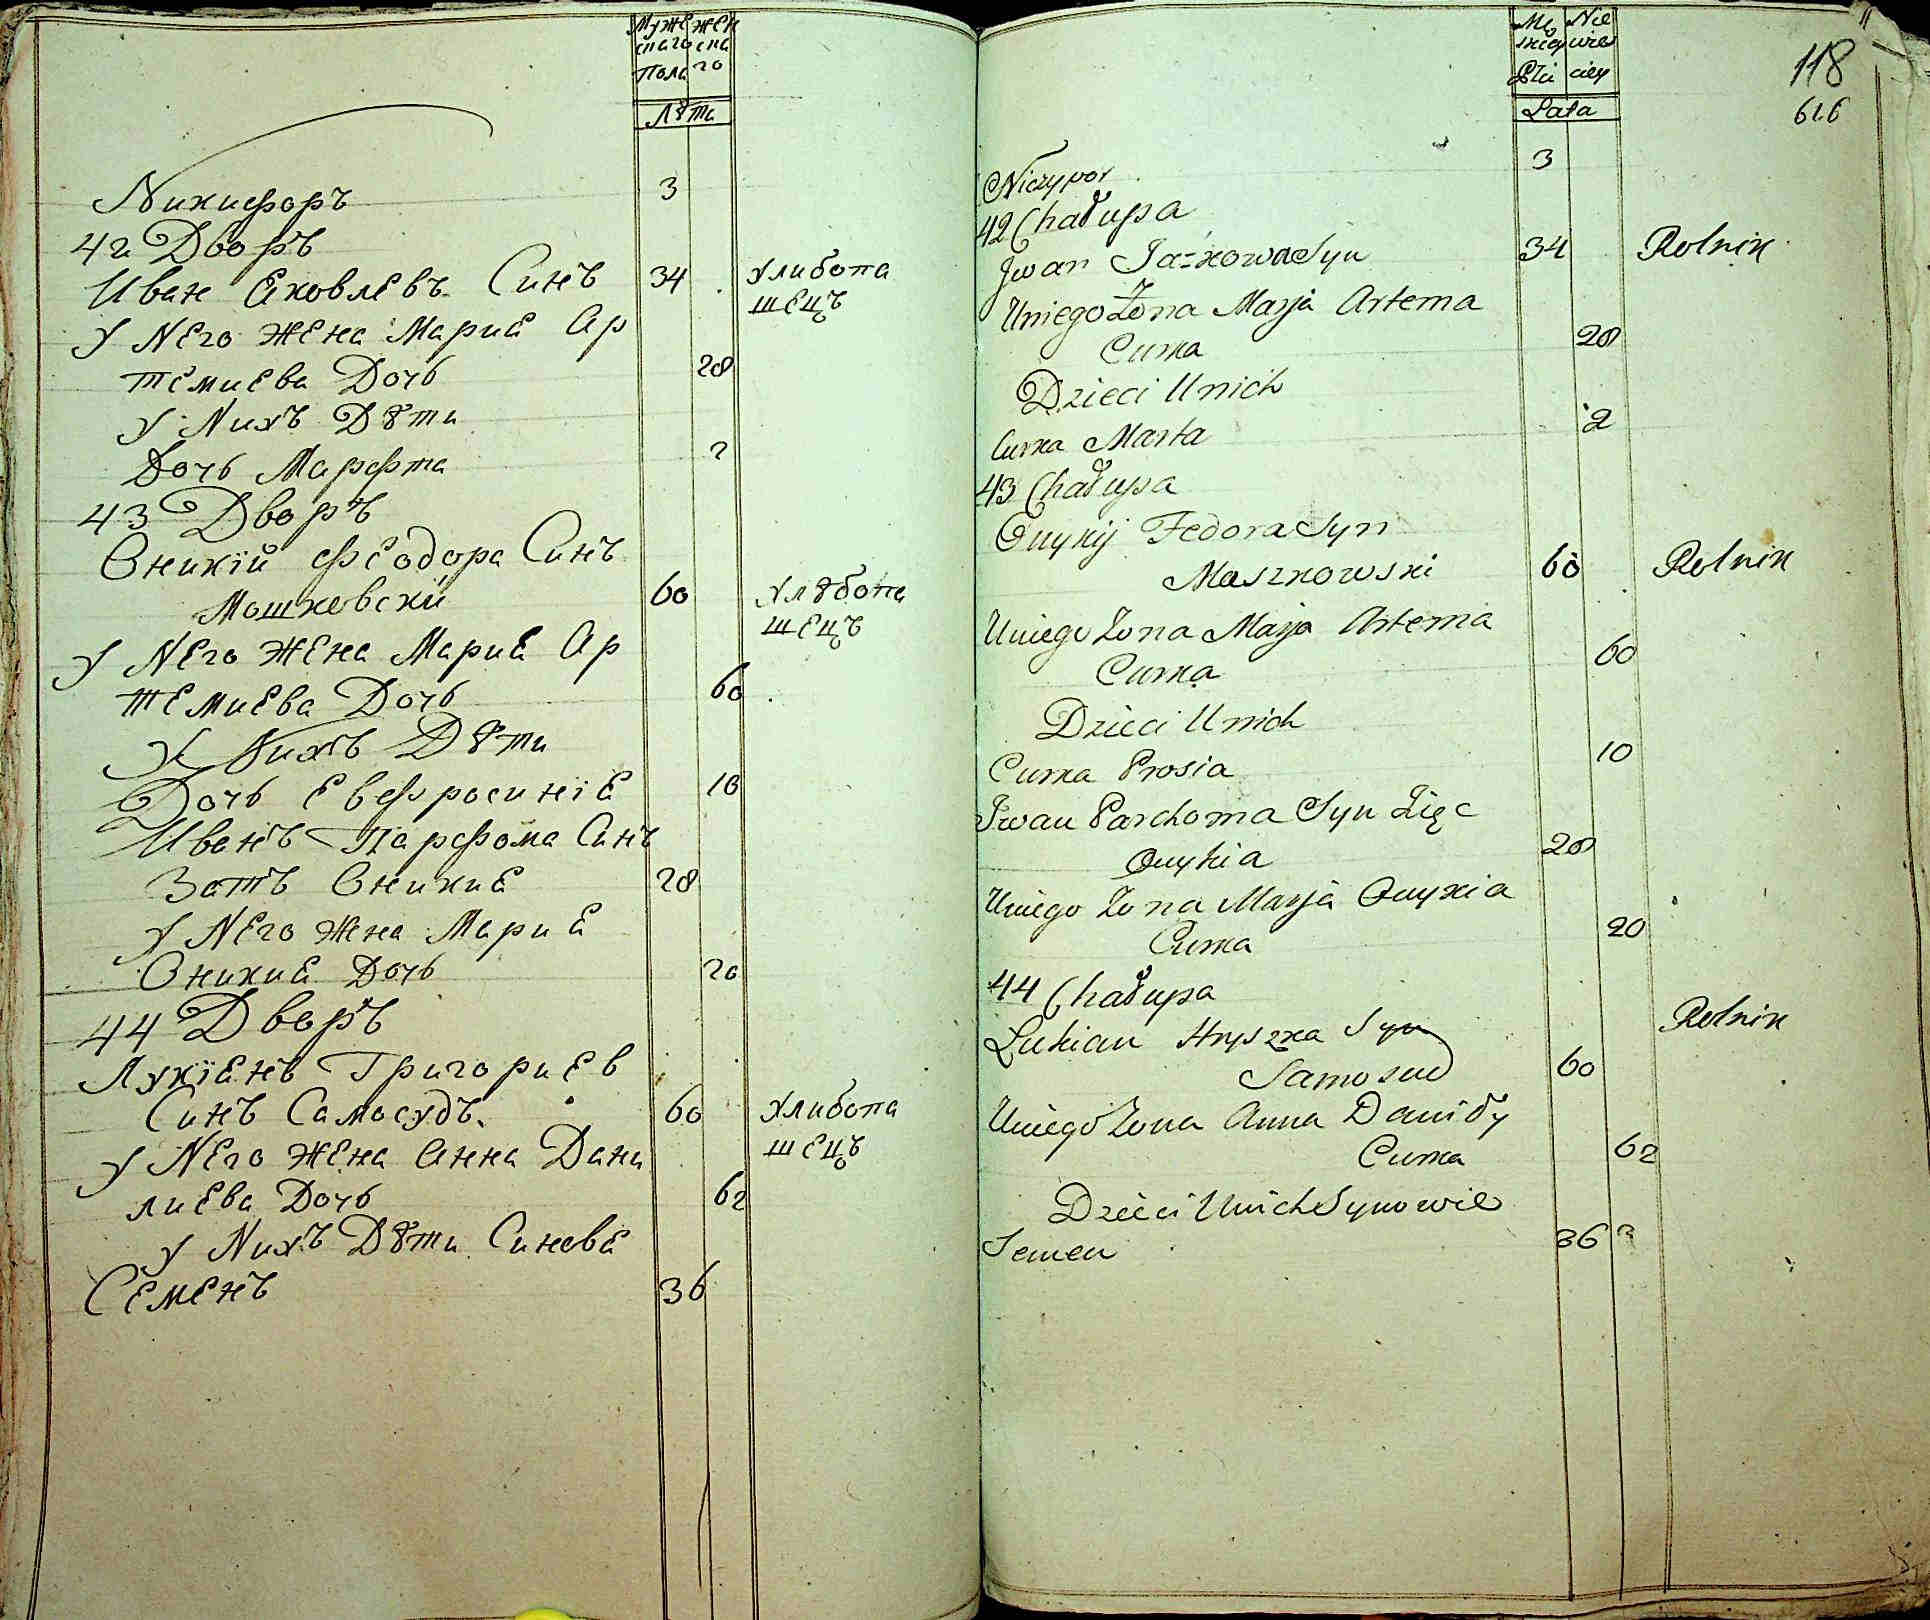 Муже жен
скаго ска
Пола го
Лѣта
Никифоръ 3
42 Дворъ
Иван Яковлевъ Синъ 34 Хлибопа
шецъ
У Него жена Мария Ар
темиева Дочь 28
У Нихъ Дѣти
Дочь Марфта 2
43 Дворъ
Оникій Феодора Синъ
Мошковскій 60 Хлѣбопа
шецъ
У Него жена Мария Ар
темиева Дочь 60
У Нихъ Дѣти
Дочь Евфросинія 10
Иванъ Парфома Синъ
Зать Оникия 28
У Него жена Мария
Оникия Дочь 20
44 Дворъ
Лукіянъ Григориев
Синъ Самосудъ. 60 Хлибопа
шецъ
У Него жена Анна Дани
лиева Дочь 62
У Нихъ Дѣти Синовя
Семенъ 36
Mę Nie
skiey wie
Płci ciey
Lata
118
616
Niczypor 3
42 Chałupa
Jwan Jaźkowa Syn 34 Rolnik
Uniego Żona Marja Artema
Curka 28
Dzieci Unich
Curka Marta 2
43 Chałupa
Onykij Fedora Syn
Maszkowski 60 Rolnik
Uniego Żona Marja Artema
Curka 60
Dzieci Unich
Curka Prosia 10
Jwan Parchoma Syn Zięc
Onykia 28
Uniego Żona Marja Onykia
Curka 20
44 Chałupa
Lukian Hryszka Syn Rolnik
Samosud 60
Uniego Żona Anna Daniły
Curka 62
Dzieci Unich Synowie
Semen 36